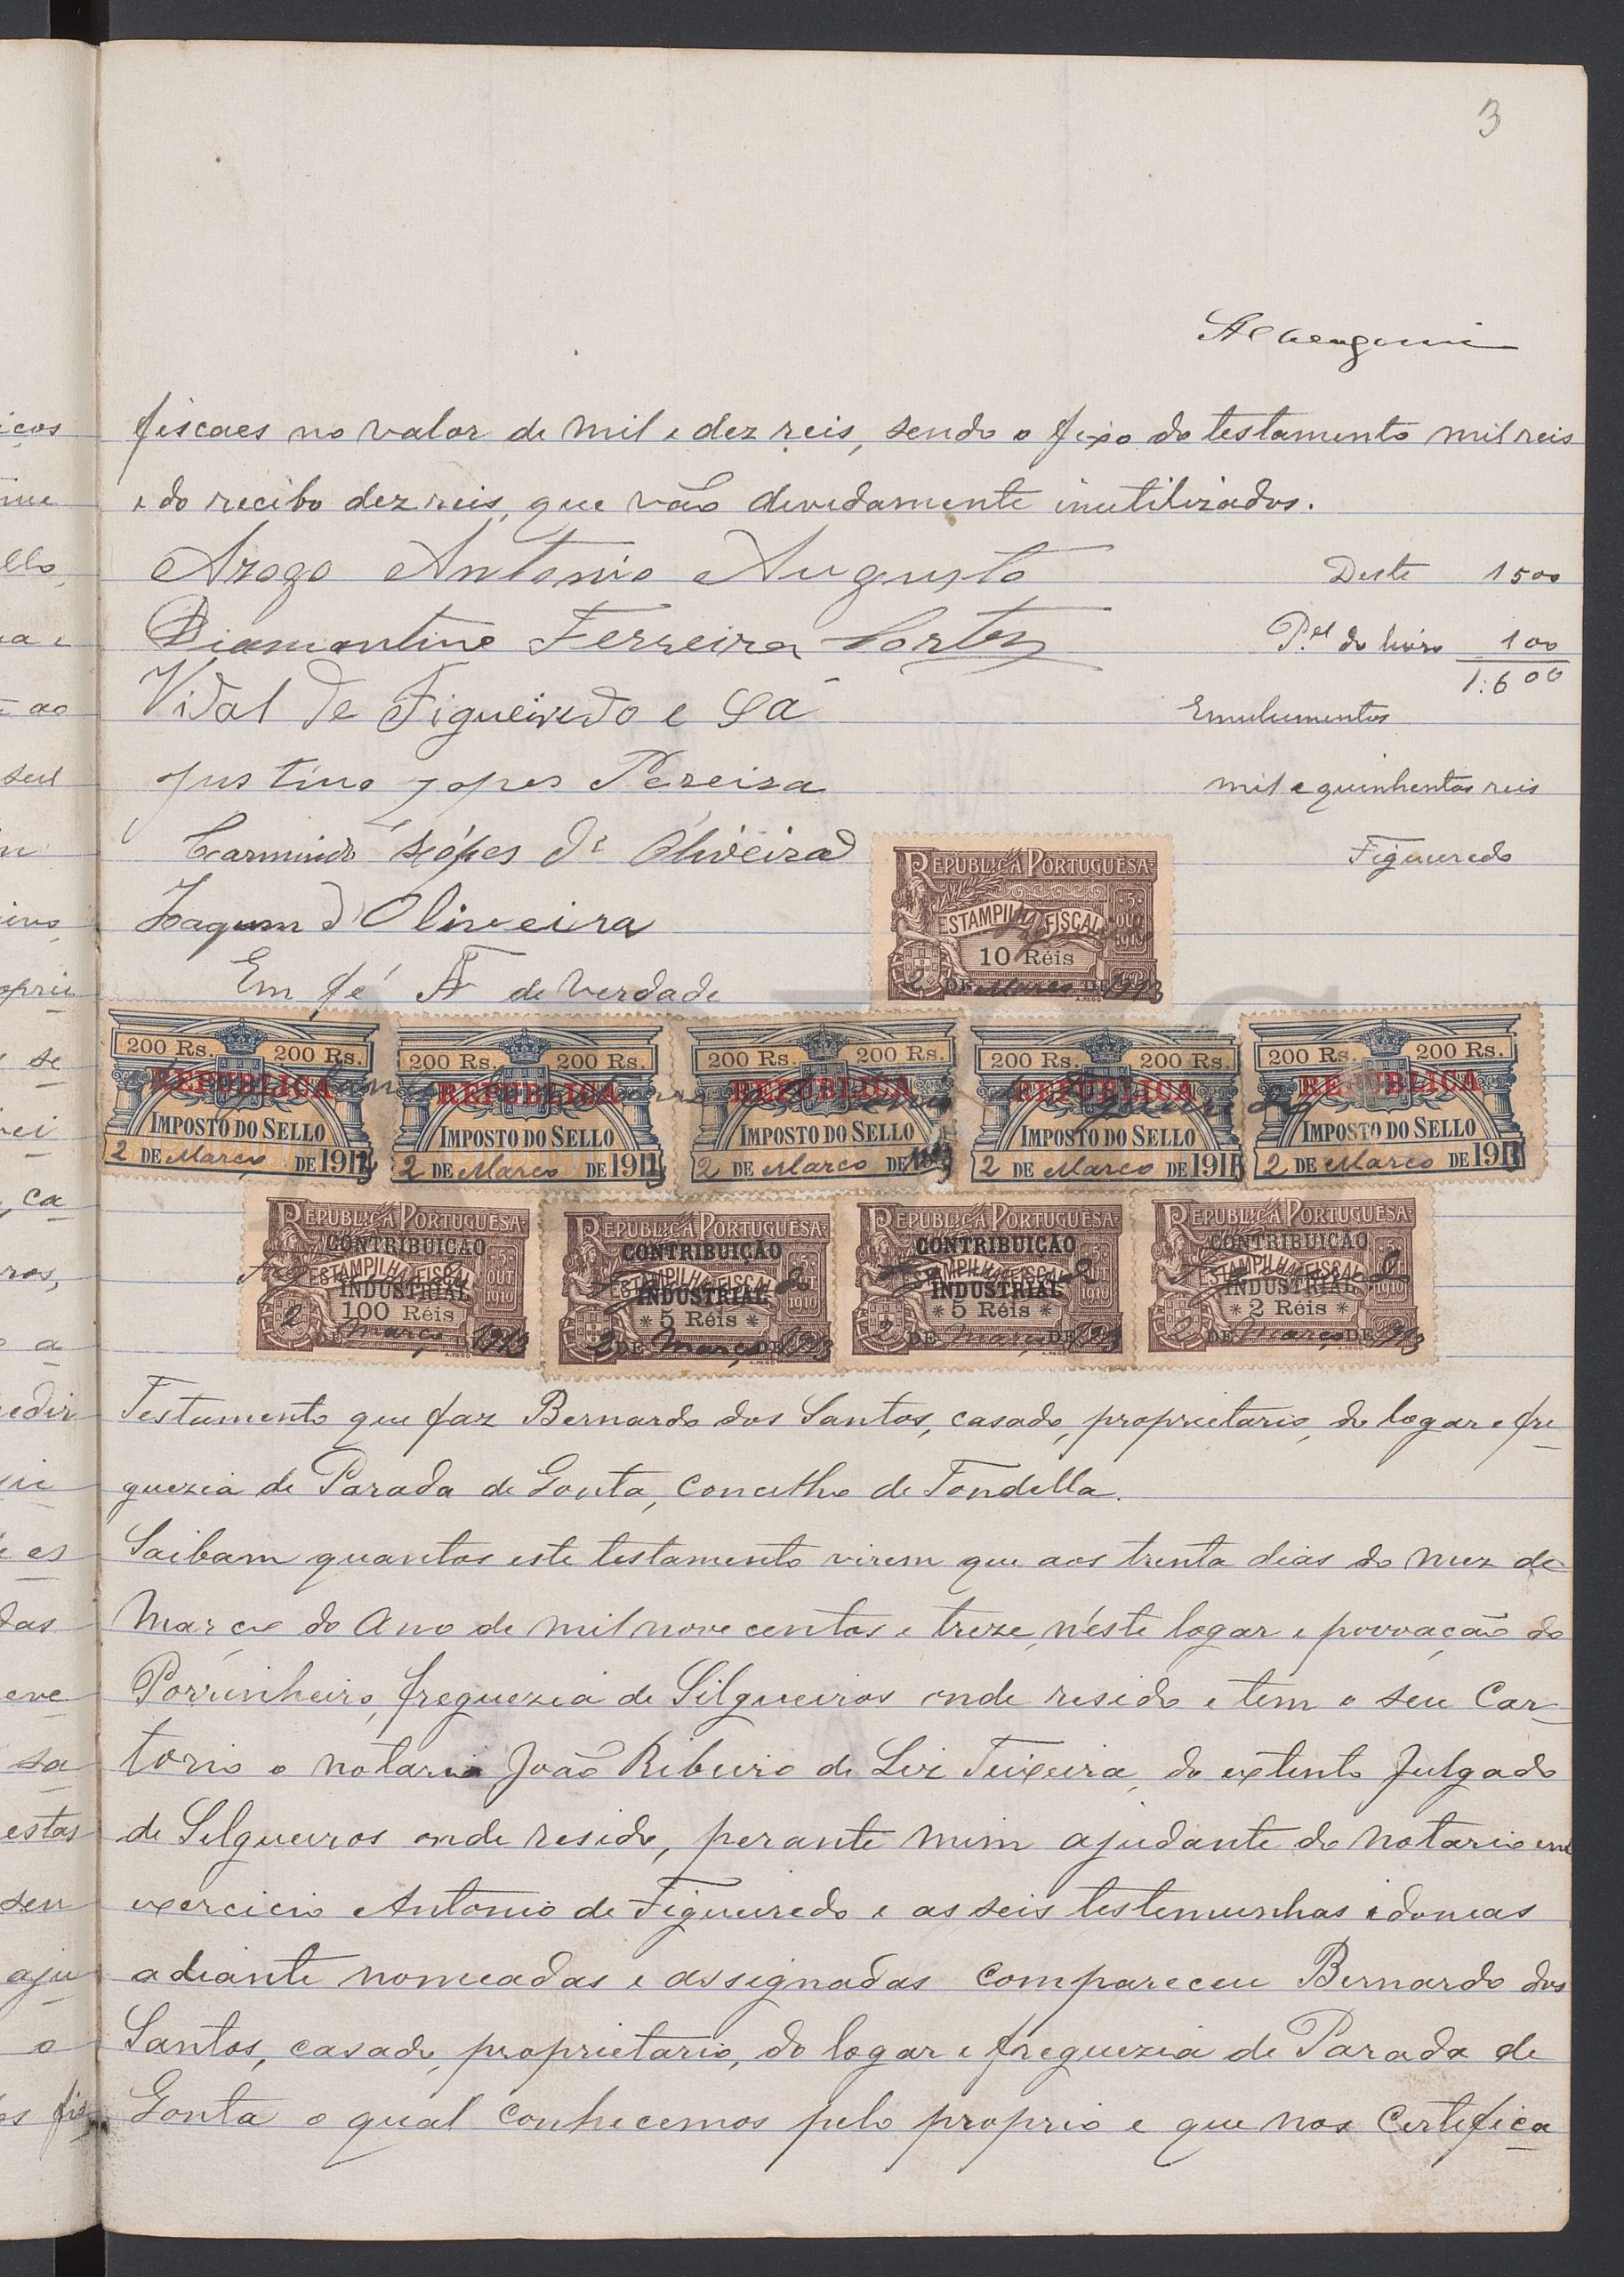 3
fiscaes no valor de mil e dez reis, sendo o fixo do testamento mil reis
e do recibo dez reis, que vão devidamente inutilizados.
Arogo Antonio Augusto
Deste 1500
Diamantino Ferreira Cortez
P.el do livro 100
1:600
Vidal de Figueiredo e Sá
Emulumentos
Justino Lopes Pereira
mil e quinhentos reis
Carmindo Lopes d' Oliveira
Figueiredo
Joaquim d'Oliveira
Em fé de verdade
REPUBLICA PORTUGUESA
5 OUT 1910
ESTAMPILHA FISCAL
10 Réis
2 DE Março DE 1913
200 Rs. 200 Rs.
REPUBLICA
IMPOSTO DO SELLO
2 DE Março DE 1913
200 Rs. 200 Rs.
REPUBLICA
IMPOSTO DO SELLO
2 DE Março DE 1913
200 Rs. 200 Rs.
REPUBLICA
IMPOSTO DO SELLO
2 DE Março DE 1913
200 Rs. 200 Rs.
REPUBLICA
IMPOSTO DO SELLO
2 DE Março DE 1913
200 Rs. 200 Rs.
REPUBLICA
IMPOSTO DO SELLO
2 DE Março DE 1913
REPUBLICA PORTUGUESA
CONTRIBUIÇÃO
ESTAMPILHA FISCAL
5 OUT 1910
INDUSTRIAL
100 Réis
2 DE Março 1913
REPUBLICA PORTUGUESA
CONTRIBUIÇÃO
ESTAMPILHA FISCAL
5 OUT 1910
INDUSTRIAL
* 5 Réis *
2 DE Março DE 1913
REPUBLICA PORTUGUESA
CONTRIBUIÇÃO
ESTAMPILHA FISCAL
5 OUT 1910
INDUSTRIAL
* 5 Réis *
2 DE Março DE 1913
REPUBLICA PORTUGUESA
CONTRIBUIÇÃO
ESTAMPILHA FISCAL
5 OUT 1910
INDUSTRIAL
* 2 Réis *
2 DE Março DE 1913
Testamento que faz Bernardo dos Santos, casado, proprietario, do logar e fre
guezia de Parada de Gonta, concelho de Tondella.
Saibam quantos este testamento virem que aos trinta dias do mez de
Março do Ano de mil nove centos e treze, n'este logar e povoação do
Porrinheiro, freguezia de Silgueiros onde reside e tem o seu Car-
torio o notario João Ribeiro de Liz Teixeira, do extento Julgado
de Silgueiros onde reside, perante mim ajudante do notario em
exercicio Antonio de Figueiredo e as seis testemunhas idoneas
adiante nomeadas e assignadas compareceu Bernardo dos
Santos, casado, proprietario, do logar e freguezia de Parada de
Gonta o qual conhecemos pelo proprio e que nos certifica